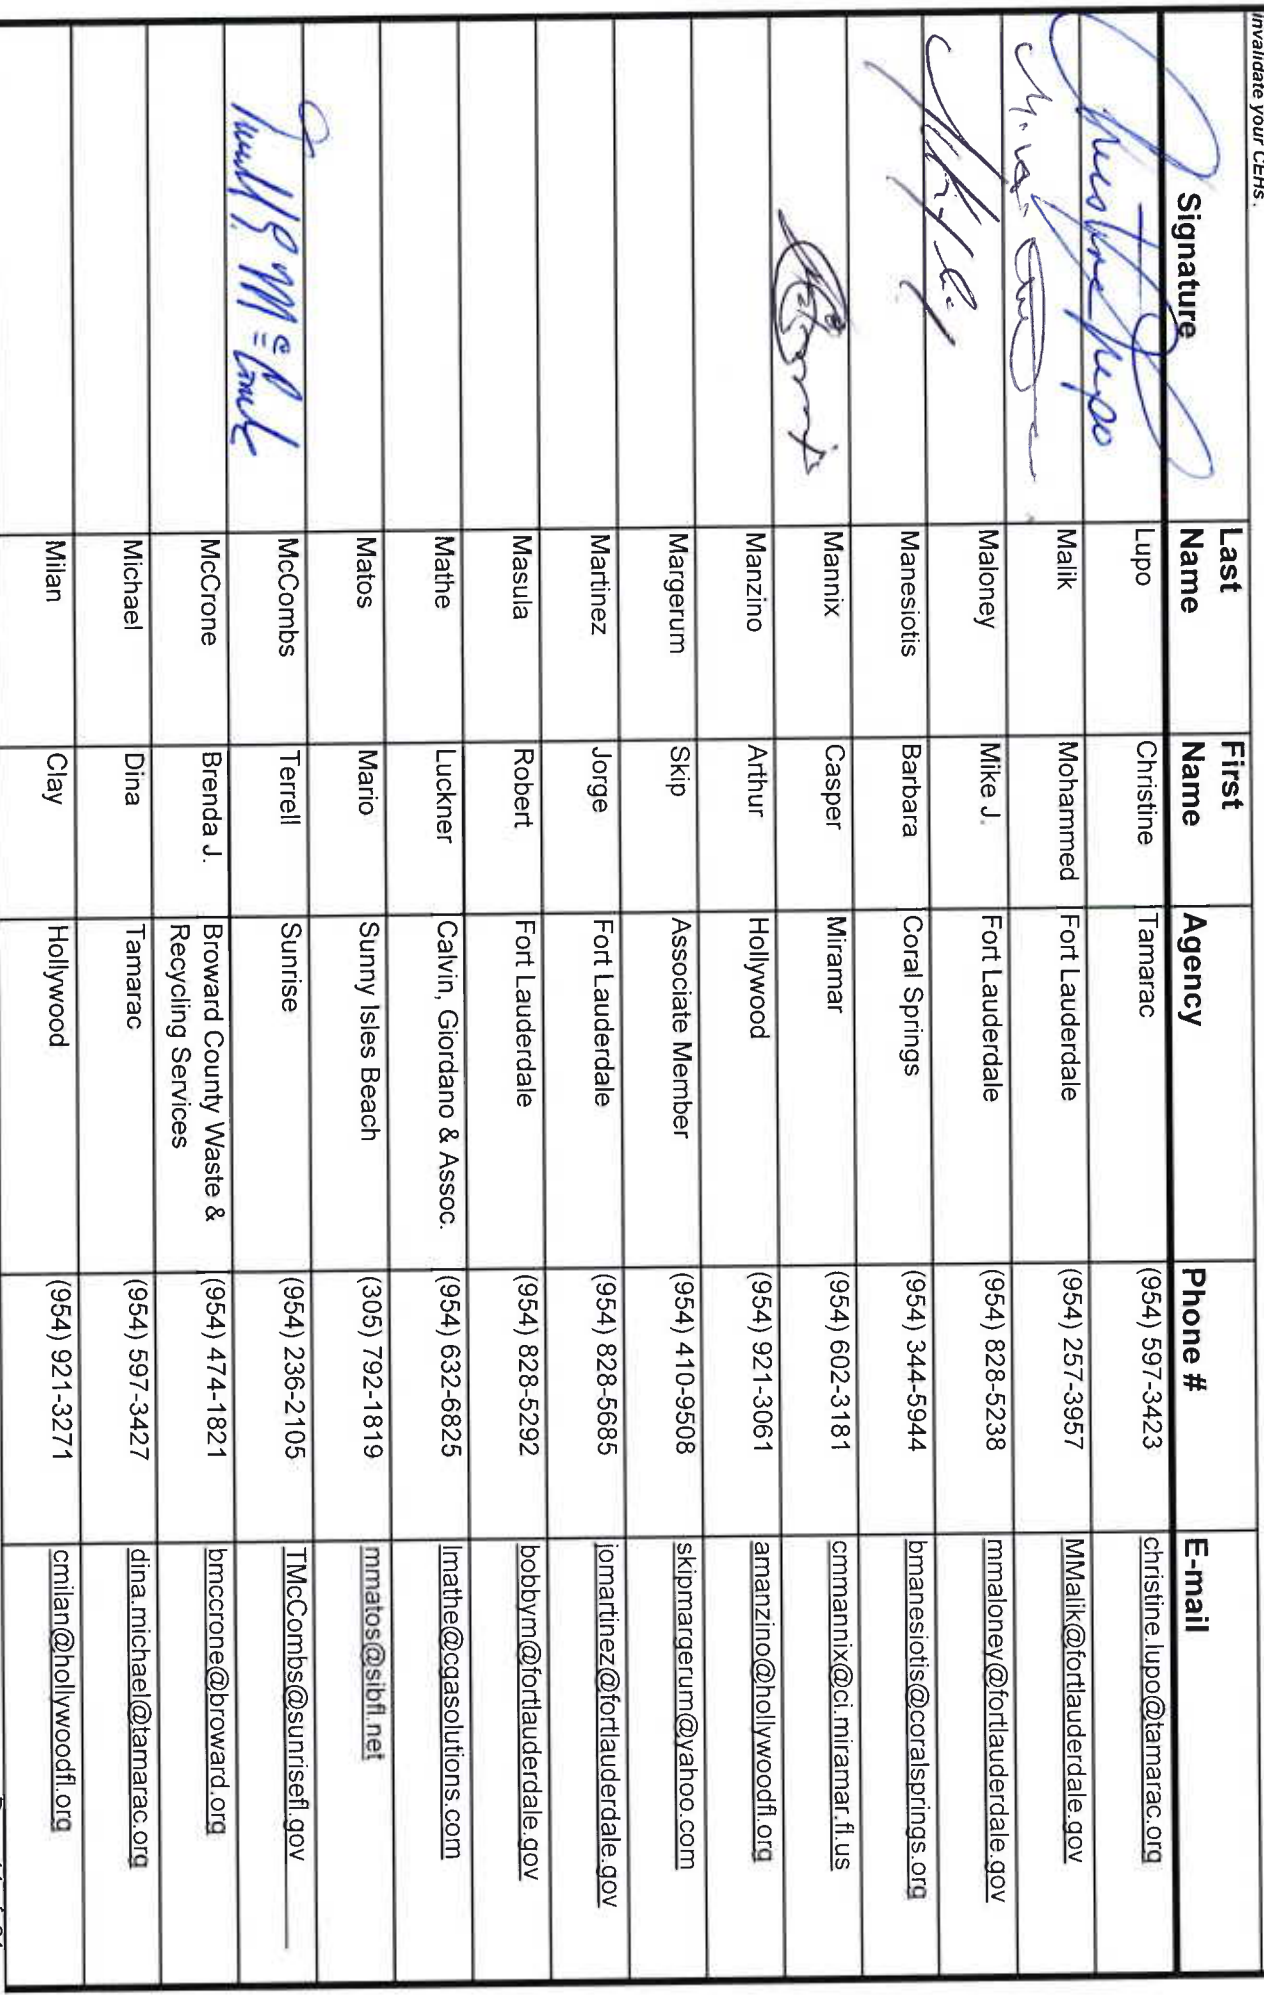 invalidate your CEHs.
Signature Last Name First Name Agency Phone # E-mail
Christine Lupo Lupo Christine Tamarac (954) 597-3423 christine.lupo@tamarac.org
Malik Mohammed Fort Lauderdale (954) 257-3957 MMalik@fortlauderdale.gov
Maloney Mike J. Fort Lauderdale (954) 828-5238 mmaloney@fortlauderdale.gov
Manesiotis Barbara Coral Springs (954) 344-5944 bmanesiotis@coralsprings.org
Mannix Casper Miramar (954) 602-3181 cmmannix@ci.miramar.fl.us
Manzino Arthur Hollywood (954) 921-3061 amanzino@hollywoodfl.org
Margerum Skip Associate Member (954) 410-9508 skipmargerum@yahoo.com
Martinez Jorge Fort Lauderdale (954) 828-5685 jomartinez@fortlauderdale.gov
Masula Robert Fort Lauderdale (954) 828-5292 bobbym@fortlauderdale.gov
Mathe Luckner Calvin, Giordano & Assoc. (954) 632-6825 lmathe@cgasolutions.com
Matos Mario Sunny Isles Beach (305) 792-1819 mmatos@sibfl.net
Terrell McCombs McCombs Terrell Sunrise (954) 236-2105 TMcCombs@sunrisefl.gov
McCrone Brenda J. Broward County Waste & Recycling Services (954) 474-1821 bmccrone@broward.org
Michael Dina Tamarac (954) 597-3427 dina.michael@tamarac.org
Milan Clay Hollywood (954) 921-3271 cmilan@hollywoodfl.org